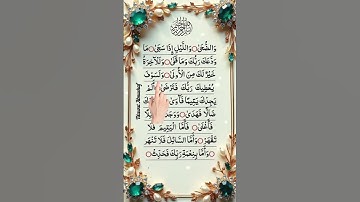 وَالضُّحَىٰ وَاللَّيْلِ إِذَا سَجَىٰ مَا
وَدَّعَكَ رَبُّكَ وَمَا قَلَىٰ وَلَلْآخِرَةُ
خَيْرٌ لَّكَ مِنَ الْأُولَىٰ وَلَسَوْفَ
يُعْطِيكَ رَبُّكَ فَتَرْضَىٰ أَلَمْ
يَجِدْكَ يَتِيمًا فَآوَىٰ
ضَالًّا فَهَدَىٰ
فَأَغْنَىٰ فَأَمَّا الْيَتِيمَ فَلَا
تَقْهَرْ وَأَمَّا السَّائِلَ فَلَا تَنْهَرْ
وَأَمَّا بِنِعْمَةِ رَبِّكَ فَحَدِّثْ